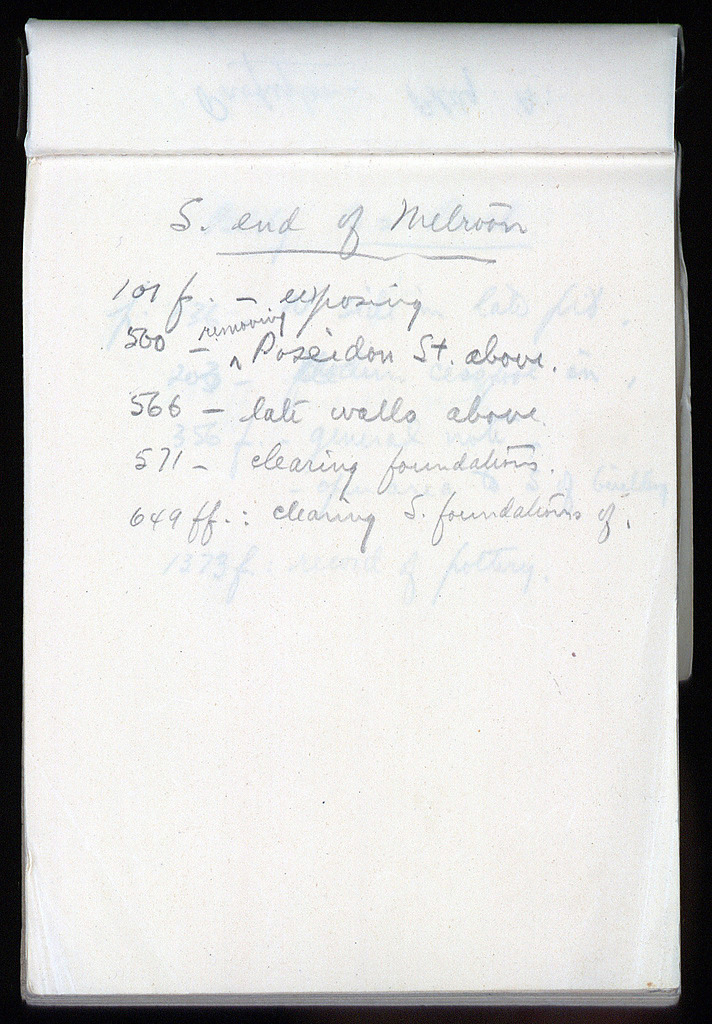 S. end of Metroön
101 f. – exposing
560 – removing Poseidon St. above.
566 – late walls above
571 – clearing foundations.
649 ff.: clearing S. foundations of.
1373 f.: record of pottery.